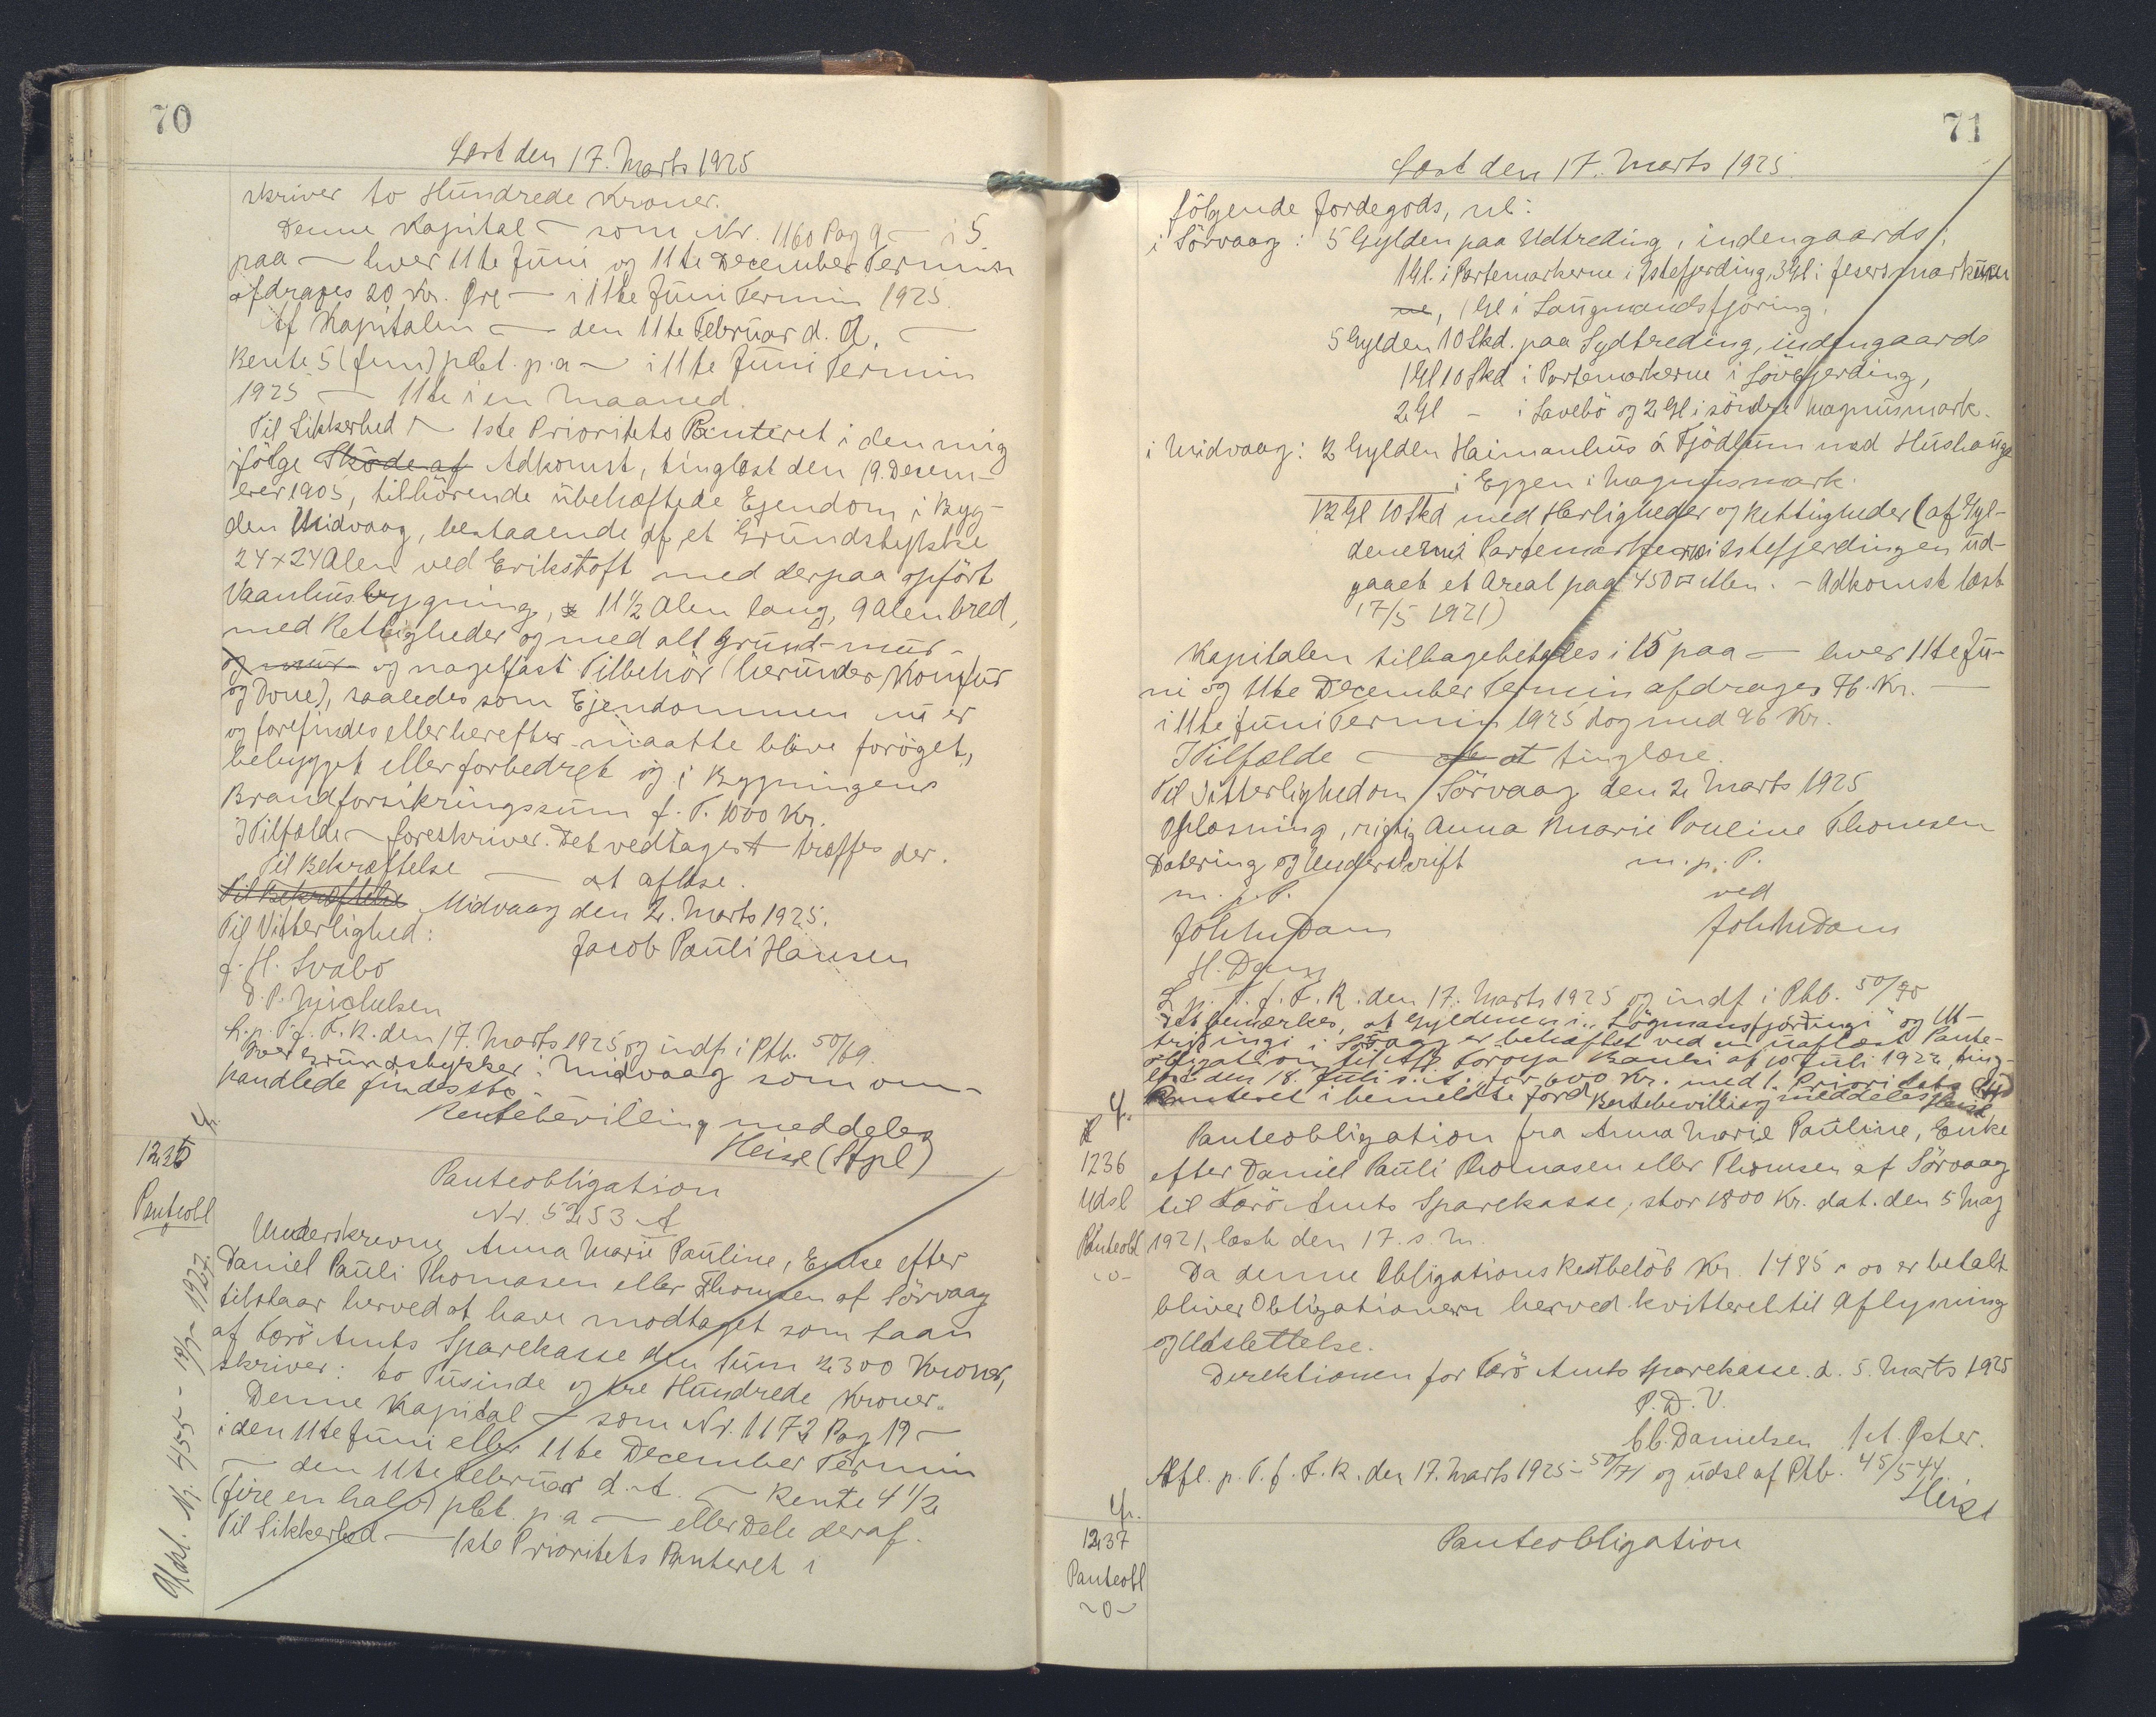 70
Læst den 17. Marts 1925
skriver to Hundrede Kroner.
Denne Kapital — som Nr. 1160 Pag 9 — i 5
paa — hver 11te Juni og 11te December Termin
afdrages 20 Kr. Øre — i 11te Juni Termin 1925.
Af Kapitalen — den 11te Februar d. A. —
Rente 5 (fem) pCt. p.a — i 11te Juni Termin
1925 — 11te i en Maaned.
Til Sikkerhed — 1ste Prioritets Panteret i den mig
ifölge Sköde af Adkomst, tinglæst den 19. Decem-
ber 1905, tilhörende übehæftede Ejendom i Byg-
den Midvaag, bestaaende af et Grundstykke
24 x 24 Alen ved Erikstoft med derpaa opfört
Vaanhusbygning, 11 1/2 Alen lang, 9 Alen bred,
med Rettigheder og med alt Grund- mur-
og mur- og nagelfast Tilbehör (herunder Komfur
og Ovne), saaledes som Ejendommen nu er
og forefindes eller herefter maatte blive foröget,
bebygget eller forbedret og i Bygningens
Brandforsikringssum f. T. 1000 Kr.
I Tilfælde — foreskriver. Det vedtages — træffes der.
Til Bekræftelse — at aflæse.
Til Bekræftelse Midvaag den 2. Marts 1925.
Til Vitterlighed:
Jacob Pauli Hansen
J. H. Svabo
D. P. Michelsen
L. p. T. f. F. R. den 17. Marts 1925 og indf i Ptb. 50/69.
Over Grundstykker i Midvaag som om-
handlede findes
Rentebevilling meddeles
Heise (Stpl)
1235
Panteobl
Panteobligation
Nr. 5253 A
Underskrevne Anna Marie Pauline, Enke efter
Daniel Pauli Thomasen eller Thomsen af Sörvaag
tilstaar herved at have modtaget som Laan
af Færö Amts Sparekasse den Sum 2300 Kroner,
skriver: to Tusinde og tre Hundrede Kroner.
Denne Kapital — som Nr. 1172 Pag 19 —
i den 11te Juni eller 11te December Termin
— den 11te Februar d. A. — Rente 4 1/2
(fire en halv) pCt. p a — eller Dele deraf.
Til Sikkerhed — 1ste Prioritets Panteret i
Udsl. Nr. 455 - 19/7- 1927.
71
Læst den 17. Marts 1925
fölgende Jordegods, nl:
i Sörvaag: 5 Gylden paa Udtreding, indengaards,
1 Gl. i Partemarkerne i Ystefjerding, 3 Gl i Jesers marküren
ne, 1 Gl i Laugmandsfjöring,
5 Gylden 10 Skd. paa Sydtreding, indengaards
1 Gl 10 Skd i Partemarkerne i Lövefjerding,
2 Gl - i Lavebö og 2 Gl i söndre Magnusmark.
i Midvaag: 2 Gylden Haimanhus á Fjödlum med Hushauge
i Eggen i Magnusmark.
12 Gl 10 Skd med Herligheder og Rettigheder (af Gyl-
dene i Partemarkerne i Ystefjerdingen ud-
gaaet et Areal paa 450 □ Alen. - Adkomst læst
17/5 1921)
Kapitalen tilbagebetales i 15 paa — hver 11te Ju-
ni og 11te December Termin afdrages 76 Kr. —
i 11te Juni Termin 1925 dog med 96 Kr.
I Tilfælde — at tinglæse.
Til Vitterlighed om Sörvaag den 2 Marts 1925
Oplæsning, rigtig Anna Marie Pauline Thomsen
Datering og Underskrift m. p. P.
m. p. P. ved
Joh Dam Joh Dam
H. Dam
L p. T. f. F. R. den 17. Marts 1925 og indf i Ptb. 50/70
Det bemærkes, at Gyldenen i "Lögmansfjórdingi" og Út-
triðingi i Sörvaag er behæftet ved en uaflæst Pante-
obligation til A/S Föroya Banki af 10 Juli 1922, ting-
læst den 18. Juli s. A. for 600 Kr. med 1. Prioritets
Panteret i bemeldte Jord. Rentebevilling meddeles Heise
1236
Udsl
Panteobl
-o-
Panteobligation fra Anna Marie Pauline, Enke
efter Daniel Pauli Thomasen eller Thomsen af Sörvaag
til Færö Amts Sparekasse, stor 1800 Kr. dat. den 5 Maj
1921, læst den 17. s. M.
Da denne Obligations Restbelöb Kr. 1485 " oo er betalt
bliver Obligationen herved kvitteret til Aflysning
og Udslettelse.
Direktionen for Færö Amts Sparekasse d. 5. Marts 1925
P. D. V.
C. C. Danielsen J. A. Öster.
Afl. p. T. f. F. R. den 17. Marts 1925 - 50/71 og udsl af Ptb. 45/544.
Heise
1237
Panteobl
-o-
Panteobligation